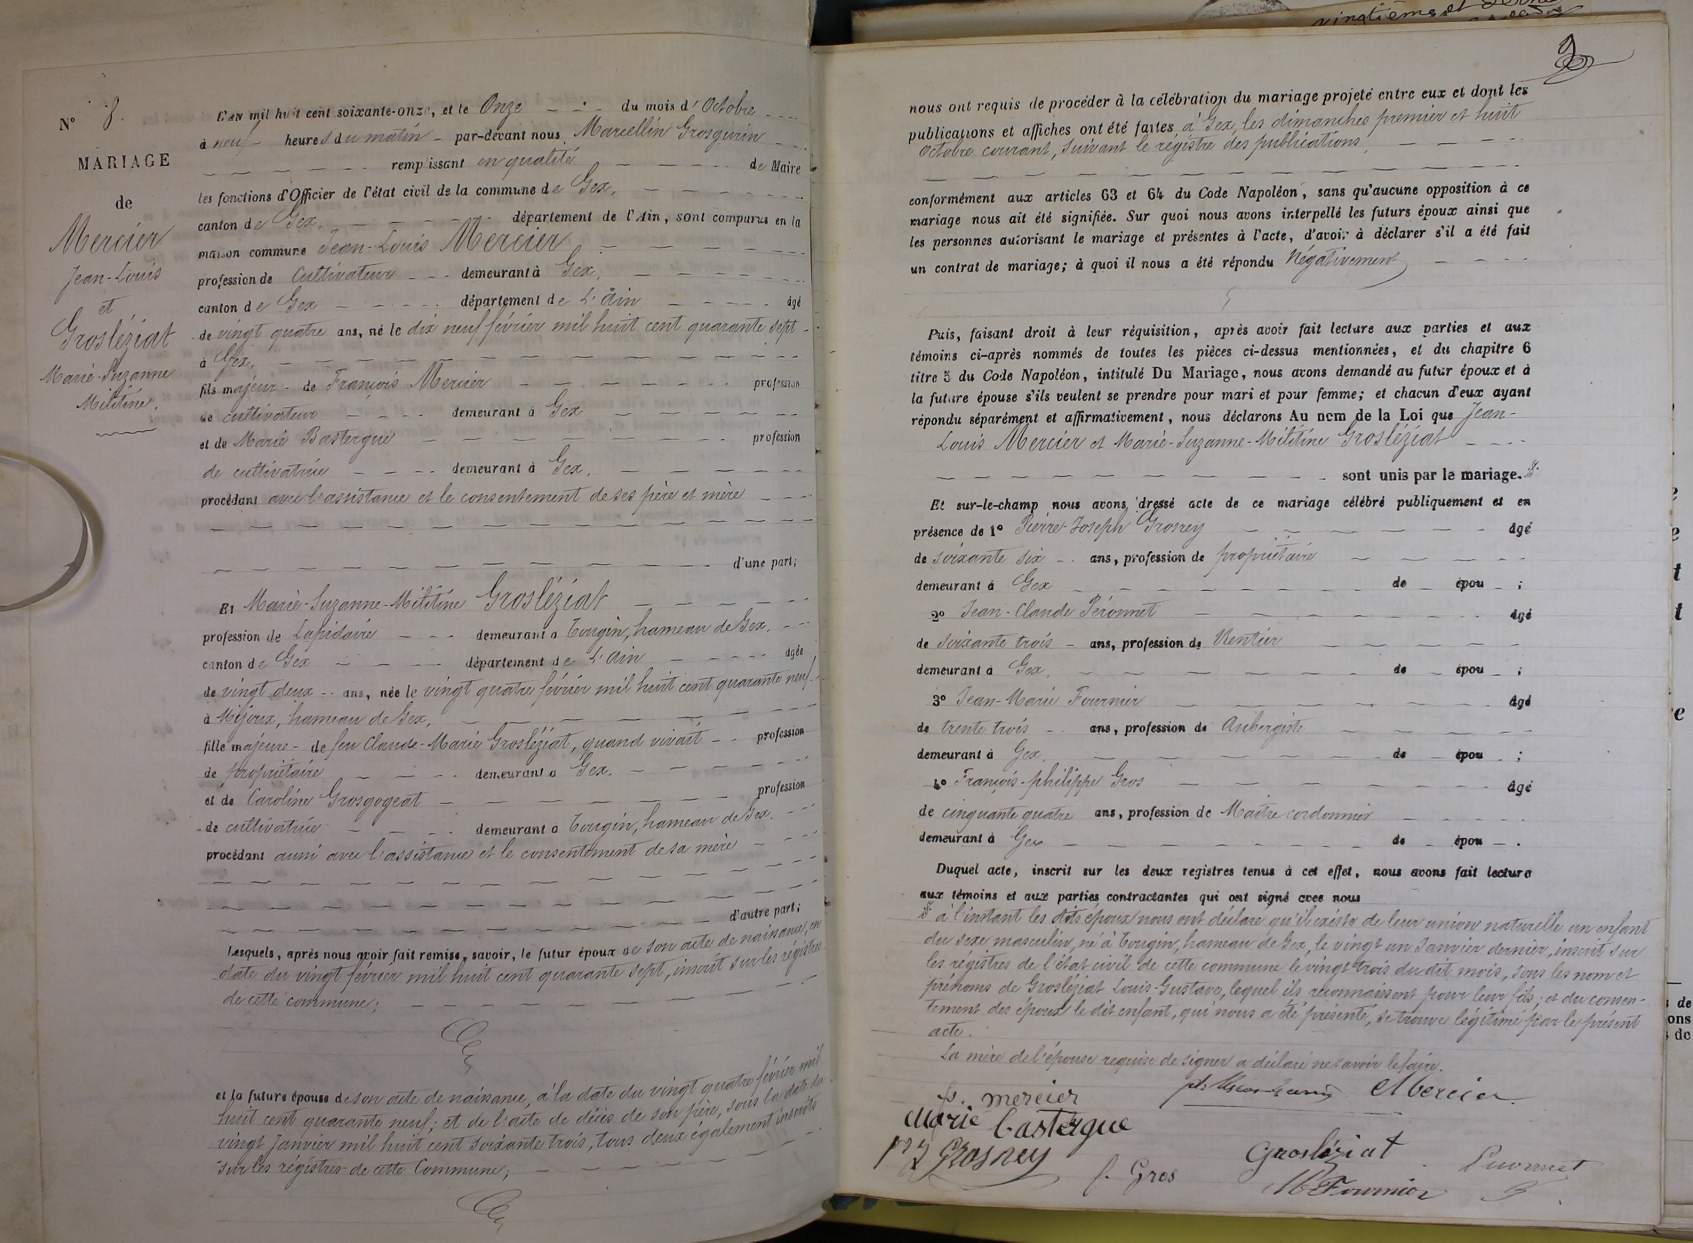 N° 8.
MARIAGE
de
Mercier
Jean-Louis
et
Grosléziat
Marie-Suzanne
Mélitine.
L'an mil huit cent soixante-onze, et le Onze du mois d'Octobre
à neuf heures du matin par-devant nous Marcellin Grosgurin
remplissant en qualité de Maire
les fonctions d'Officier de l'état civil de la commune de Gex,
canton de Gex, département de l'Ain, sont comparus en la
maison commune Jean-Louis Mercier
profession de Cultivateur demeurant à Gex,
canton de Gex département de L'Ain âgé
de vingt quatre ans, né le dix neuf février mil huit cent quarante sept
à Gex,
fils majeur de François Mercier profession
de cultivateur demeurant à Gex
et de Marie Bastergue profession
de cultivatrice demeurant à Gex,
procédant avec l'assistance et le consentement de ses père et mère
d'une part;
Et Marie-Suzanne-Mélitine Grosléziat
profession de Lapidaire demeurant à Tougin, hameau de Gex,
canton de Gex département de L'Ain âgée
de vingt deux ans, née le vingt quatre février mil huit cent quarante neuf
à Mijoux, hameau de Gex,
fille majeure de feu Claude-Marie Grosléziat, quand vivait profession
de propriétaire demeurant à Gex.
et de Caroline Grosgogeat profession
de cultivatrice demeurant à Tougin, hameau de Gex,
procédant aussi avec l'assistance et le consentement de sa mère
d'autre part;
Lesquels, après nous avoir fait remise, savoir, le futur époux de son acte de naissance, en
date du vingt février mil huit cent quarante sept, inscrit sur les régistres
de cette commune;
et la future épouse de son acte de naissance, à la date du vingt quatre février mil
huit cent quarante neuf; et de l'acte de décès de son père, sous la date du
vingt Janvier mil huit cent soixante trois, tous deux également inscrits
sur les régistres de cette Commune;
vingtième et
nous ont requis de procéder à la célébration du mariage projeté entre eux et dont les
publications et affiches ont été faites à Gex, les dimanches premier et huit
Octobre courant, suivant le régistre des publications,
conformément aux articles 63 et 64 du Code Napoléon, sans qu'aucune opposition à ce
mariage nous ait été signifiée. Sur quoi nous avons interpellé les futurs époux ainsi que
les personnes autorisant le mariage et présentes à l'acte, d'avoir à déclarer s'il a été fait
un contrat de mariage; à quoi il nous a été répondu Négativement
Puis, faisant droit à leur réquisition, après avoir fait lecture aux parties et aux
témoins ci-après nommés de toutes les pièces ci-dessus mentionnées, et du chapitre 6
titre 5 du Code Napoléon, intitulé Du Mariage, nous avons demandé au futur époux et à
la future épouse s'ils veulent se prendre pour mari et pour femme; et chacun d'eux ayant
répondu séparément et affirmativement, nous déclarons Au nom de la Loi que Jean-
Louis Mercier et Marie-Suzanne-Mélitine Grosléziat
sont unis par le mariage.
Et sur-le-champ nous avons dressé acte de ce mariage célébré publiquement et en
présence de 1° Pierre-Joseph Grosrey âgé
de soixante six ans, profession de propriétaire
demeurant à Gex de épou ;
2° Jean-Claude Péronnet âgé
de soixante trois ans, profession de Rentier
demeurant à Gex, de épou ;
3° Jean-Marie Fournier âgé
de trente trois ans, profession de Aubergiste
demeurant à Gex, de épou ;
4° François-philippe Gros âgé
de cinquante quatre ans, profession de Maître cordonnier
demeurant à Gex de épou .
Duquel acte, inscrit sur les deux registres tenus à cet effet, nous avons fait lecture
aux témoins et aux parties contractantes qui ont signé avec nous
à l'instant les dits époux nous ont déclaré qu'il existe de leur union naturelle un enfant
du sexe masculin, né à Tougin, hameau de Gex, le vingt un Janvier dernier, inscrit sur
les régistres de l'état civil de cette commune le vingt trois du dit mois, sous les nom et
prénoms de Grosléziat Louis-Gustave, lequel ils reconnaissent pour leur fils; et du consen-
tement des époux le dit enfant, qui nous a été présenté, se trouve légitimé par le présent
acte.
La mère de l'épouse requise de signer a déclaré ne savoir le faire.
f. mercier
Mercier
Marie bastergue
Grosrey
f. Gros
Grosléziat
M Fournier
Peronnet